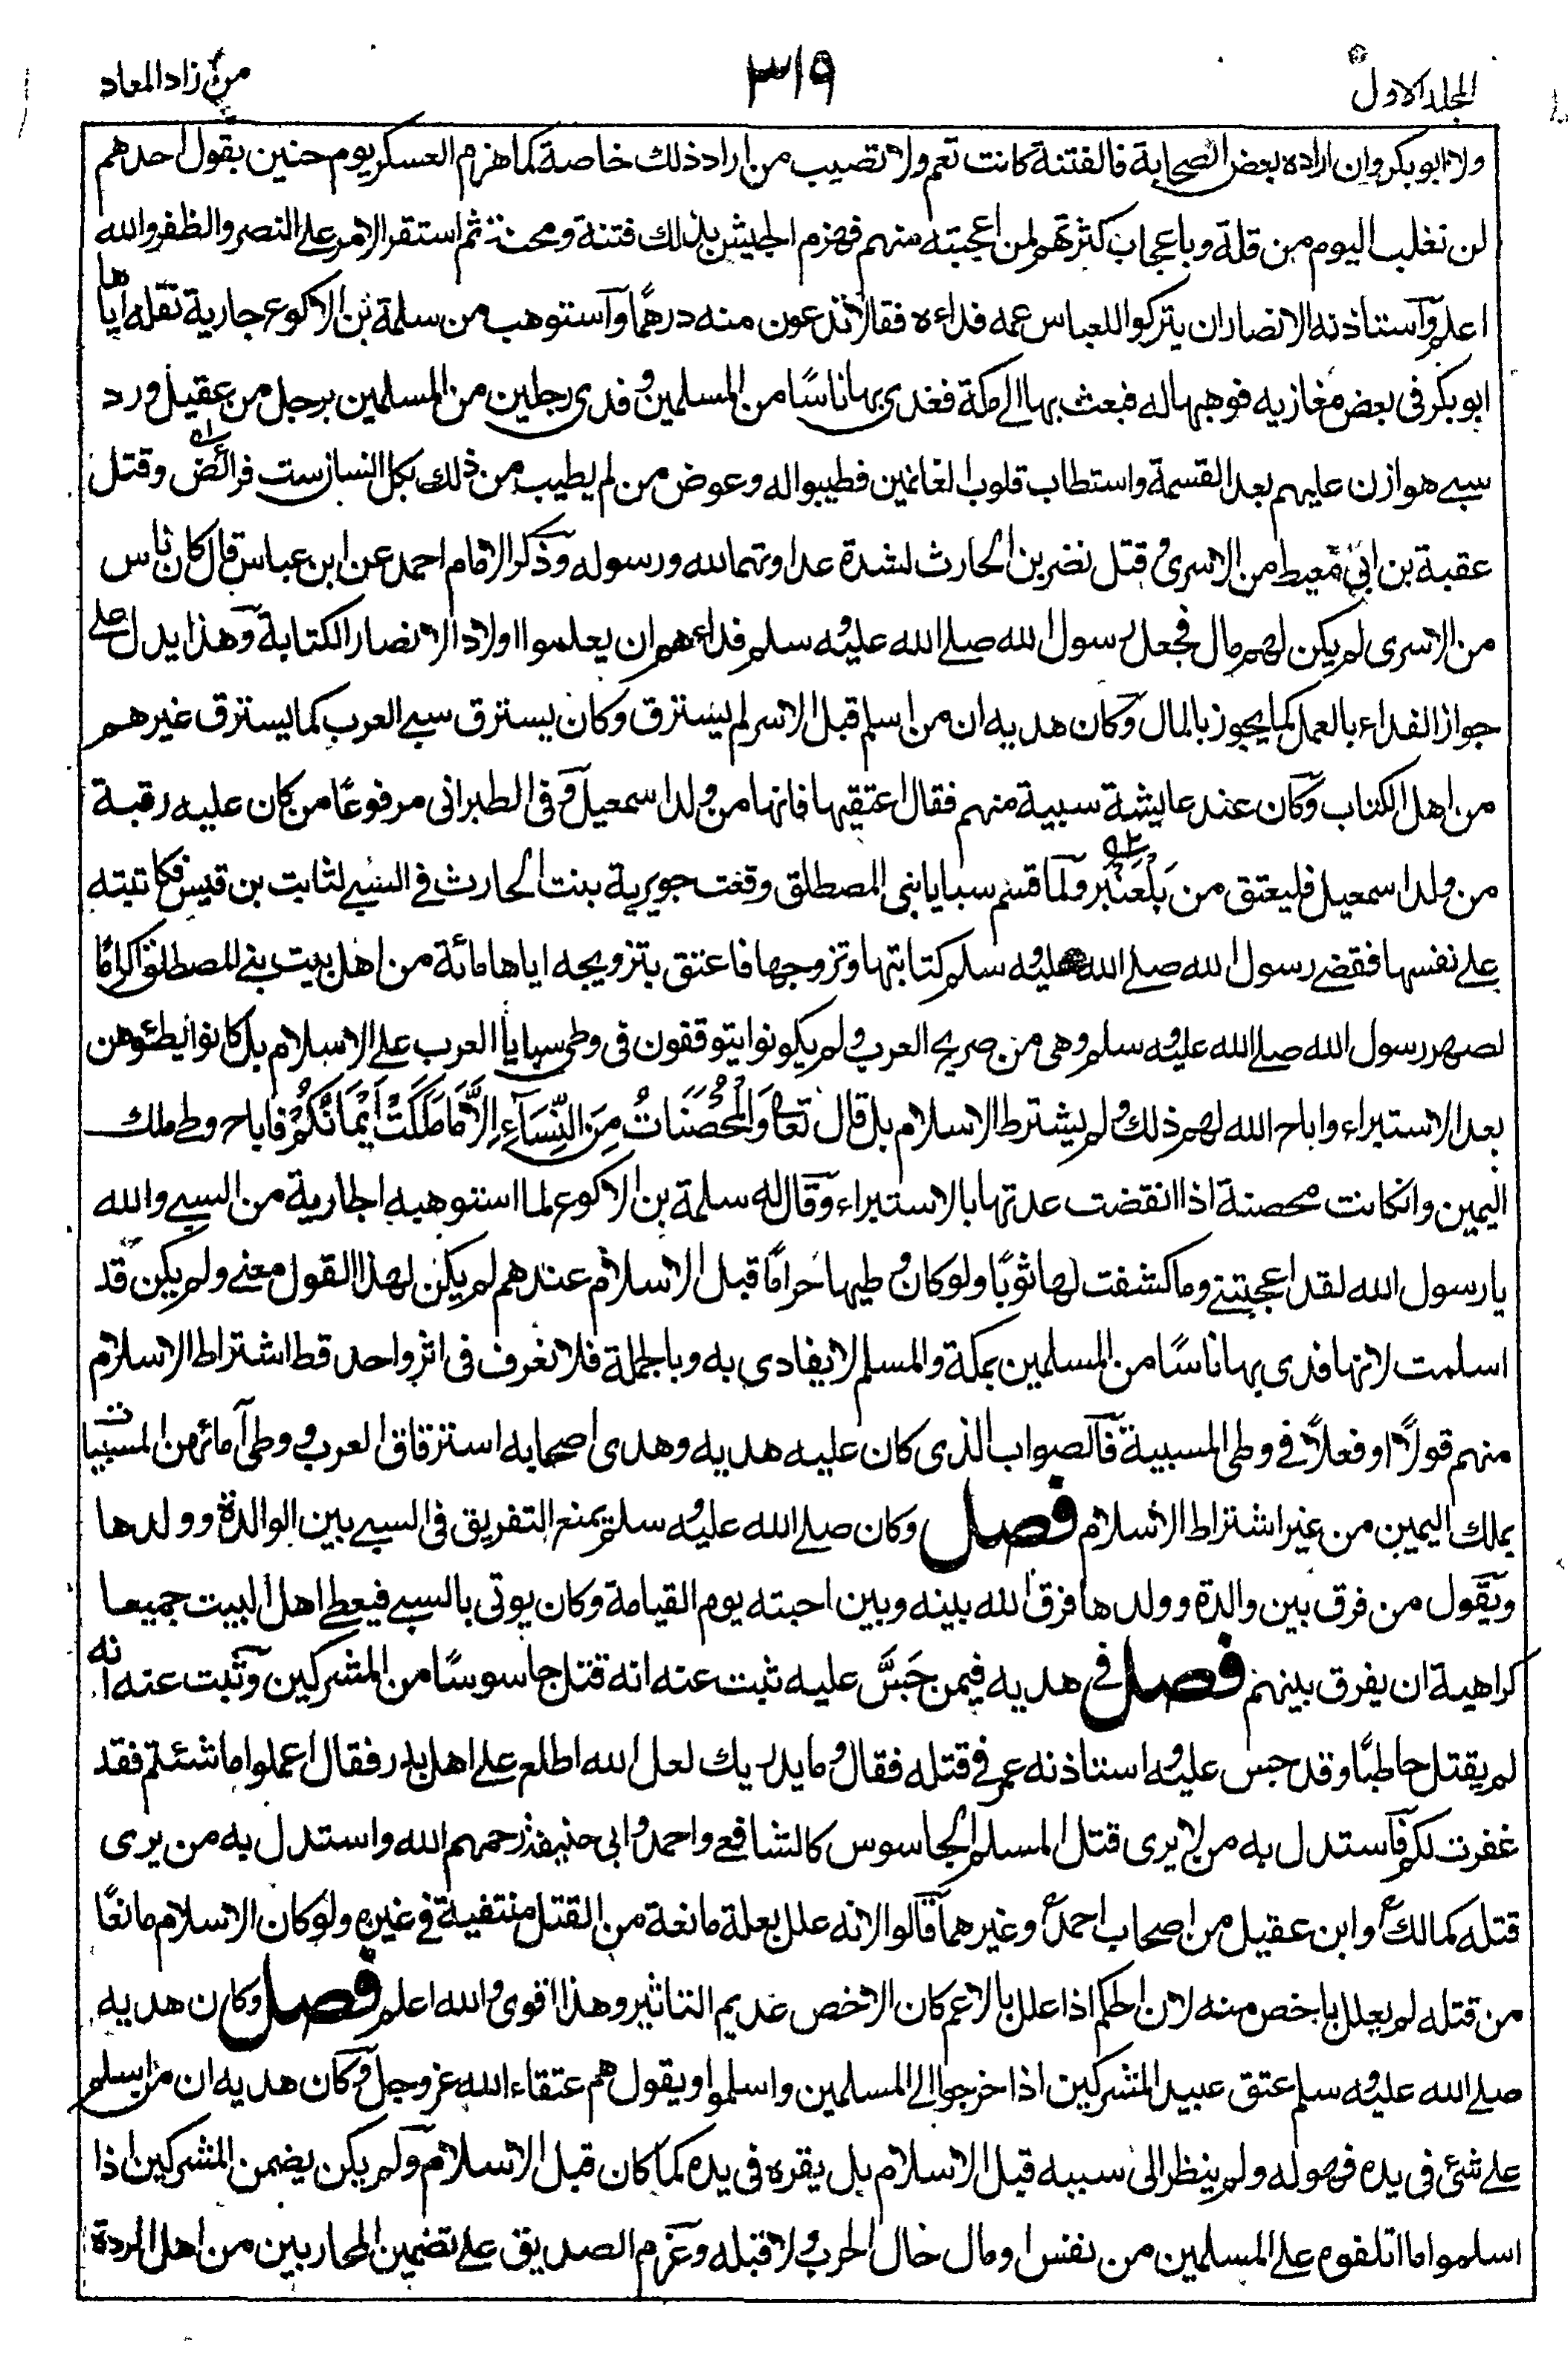 المجلد الاول ٣١٩ من زاد المعاد
ولا ابو بكر وان اراده بعض الصحابة فالفتنة كانت تعم ولا تصيب من اراد ذلك خاصة كما هزم العسكر يوم حنين بقول احدهم
لن نغلب اليوم من قلة وباعجاب كثرتهم لمن اعجبته منهم فهزم الجيش بذلك فتنة ومحنة ثم استقر الامر على النصر والظفر والله
اعلم وآستاذنه الانصار ان يتركوا للعباس عمه فداءه فقال لا تدعون منه درهمًا وآستوهب من سلمة بن الاكوع جارية نفله اياها
ابو بكر فى بعض مغازيه فوهبها له فبعث بها الى مكة ففدى بها ناسًا من المسلمين وفدى رجلين من المسلمين برجل من عقيل ورد
سبي هوازن عليهم بعد القسمة واستطاب قلوب الغانمين فطيبوا له وعوض من لم يطيب من ذلك بكل انسان ست فرائض وقتل
عقبة بن ابي معيط من الاسرى وقتل نضر بن الحارث لشدة عداوتهما لله ورسوله وذكر الامام احمد عن ابن عباس قال كان ناس
من الاسرى لم يكن لهم مال فجعل رسول الله صلى الله عليه وسلم فداءهم ان يعلموا اولاد الانصار الكتابة وهذا يدل على
جواز الفداء بالعمل كما يجوز بالمال وكان هديه ان من اسلم قبل الاسر لم يسترق وكان يسترق سبي العرب كما يسترق غيرهم
من اهل الكتاب وكان عند عايشة سبية منهم فقال اعتقيها فانها من ولد اسمعيل وفى الطبرانى مرفوعًا من كان عليه رقبة
من ولد اسمعيل فليعتق من بَلْعَنْبر ولما قسم سبايا بنى المصطلق وقعت جويرية بنت الحارث في السبي لثابت بن قيس فكاتبته
على نفسها فقضى رسول الله صلى الله عليه وسلم كتابتها وتزوجها فاعتق بتزويجه اياها مائة من اهل بيت بنى المصطلق اكرامًا
لصهر رسول الله صلى الله عليه وسلم وهى من صريح العرب ولم يكونوا يتوقفون فى وطى سبايا العرب على الاسلام بل كانوا يطئوهن
بعد الاستبراء واباح الله لهم ذلك ولم يشترط الاسلام بل قال تعالى وَالْمُحْصَنَاتُ مِنَ النِّسَاءِ اِلَّا مَا مَلَكَتْ اَيْمَانُكُمْ فاباح وطى ملك
اليمين وانكانت محصنة اذا انقضت عدتها بالاستبراء وقال له سلمة بن الاكوع لما استوهبه الجارية من السبي والله
يا رسول الله لقد اعجبتنى وما كشفت لها ثوبًا ولو كان وطيها حرامًا قبل الاسلام عندهم لم يكن لهذا القول معنى ولم يكن قد
اسلمت لانها فدى بها ناسًا من المسلمين بمكة والمسلم لا يفادى به وبالجملة فلا نعرف فى اثر واحد قط اشتراط الاسلام
منهم قولًا او فعلًا في وطى المسبية فالصواب الذى كان عليه هديه وهدى اصحابه استرقاق العرب ووطى امائهن المسبيات
بملك اليمين من غير اشتراط الاسلام فصل وكان صلى الله عليه وسلم يمنع التفريق فى السبي بين الوالدة وولدها
ويقول من فرق بين والدة وولدها فرق الله بينه وبين احبته يوم القيامة وكان يوتى بالسبي فيعطى اهل البيت جميعا
كراهية ان يفرق بينهم فصل في هديه فيمن جَسَّ عليه ثبت عنه انه قتل جاسوسًا من المشركين وثبت عنه انه
لم يقتل حاطبًا وقد جس عليه واستاذنه عمر في قتله فقال وما يدريك لعل الله اطلع على اهل بدر فقال اعملوا ما شئتم فقد
غفرت لكم فآستدل به من لا يرى قتل المسلم الجاسوس كالشافعي واحمد وابى حنيفة رحمهم الله واستدل به من يرى
قتله كمالك وابن عقيل من اصحاب احمد وغيرهما قالوا لانه علل بعلة مانعة من القتل منتفية في غيره ولو كان الاسلام مانعًا
من قتله لم يعلل باخص منه لان الحكم اذا علل بالاعم كان الاخص عديم التاثير وهذا اقوى والله اعلم فصل وكان هديه
صلى الله عليه وسلم عتق عبيد المشركين اذا خرجوا الى المسلمين واسلموا ويقول هم عتقاء الله عز وجل وكان هديه ان من اسلم
على شئ فى يده فهو له ولم ينظر الى سببه قبل الاسلام بل يقره فى يده كما كان قبل الاسلام ولم يكن يضمن المشركين اذا
اسلموا ما اتلفوه على المسلمين من نفس او مال حال الحرب ولا قبله وعزم الصديق على تضمين المحاربين من اهل الردة